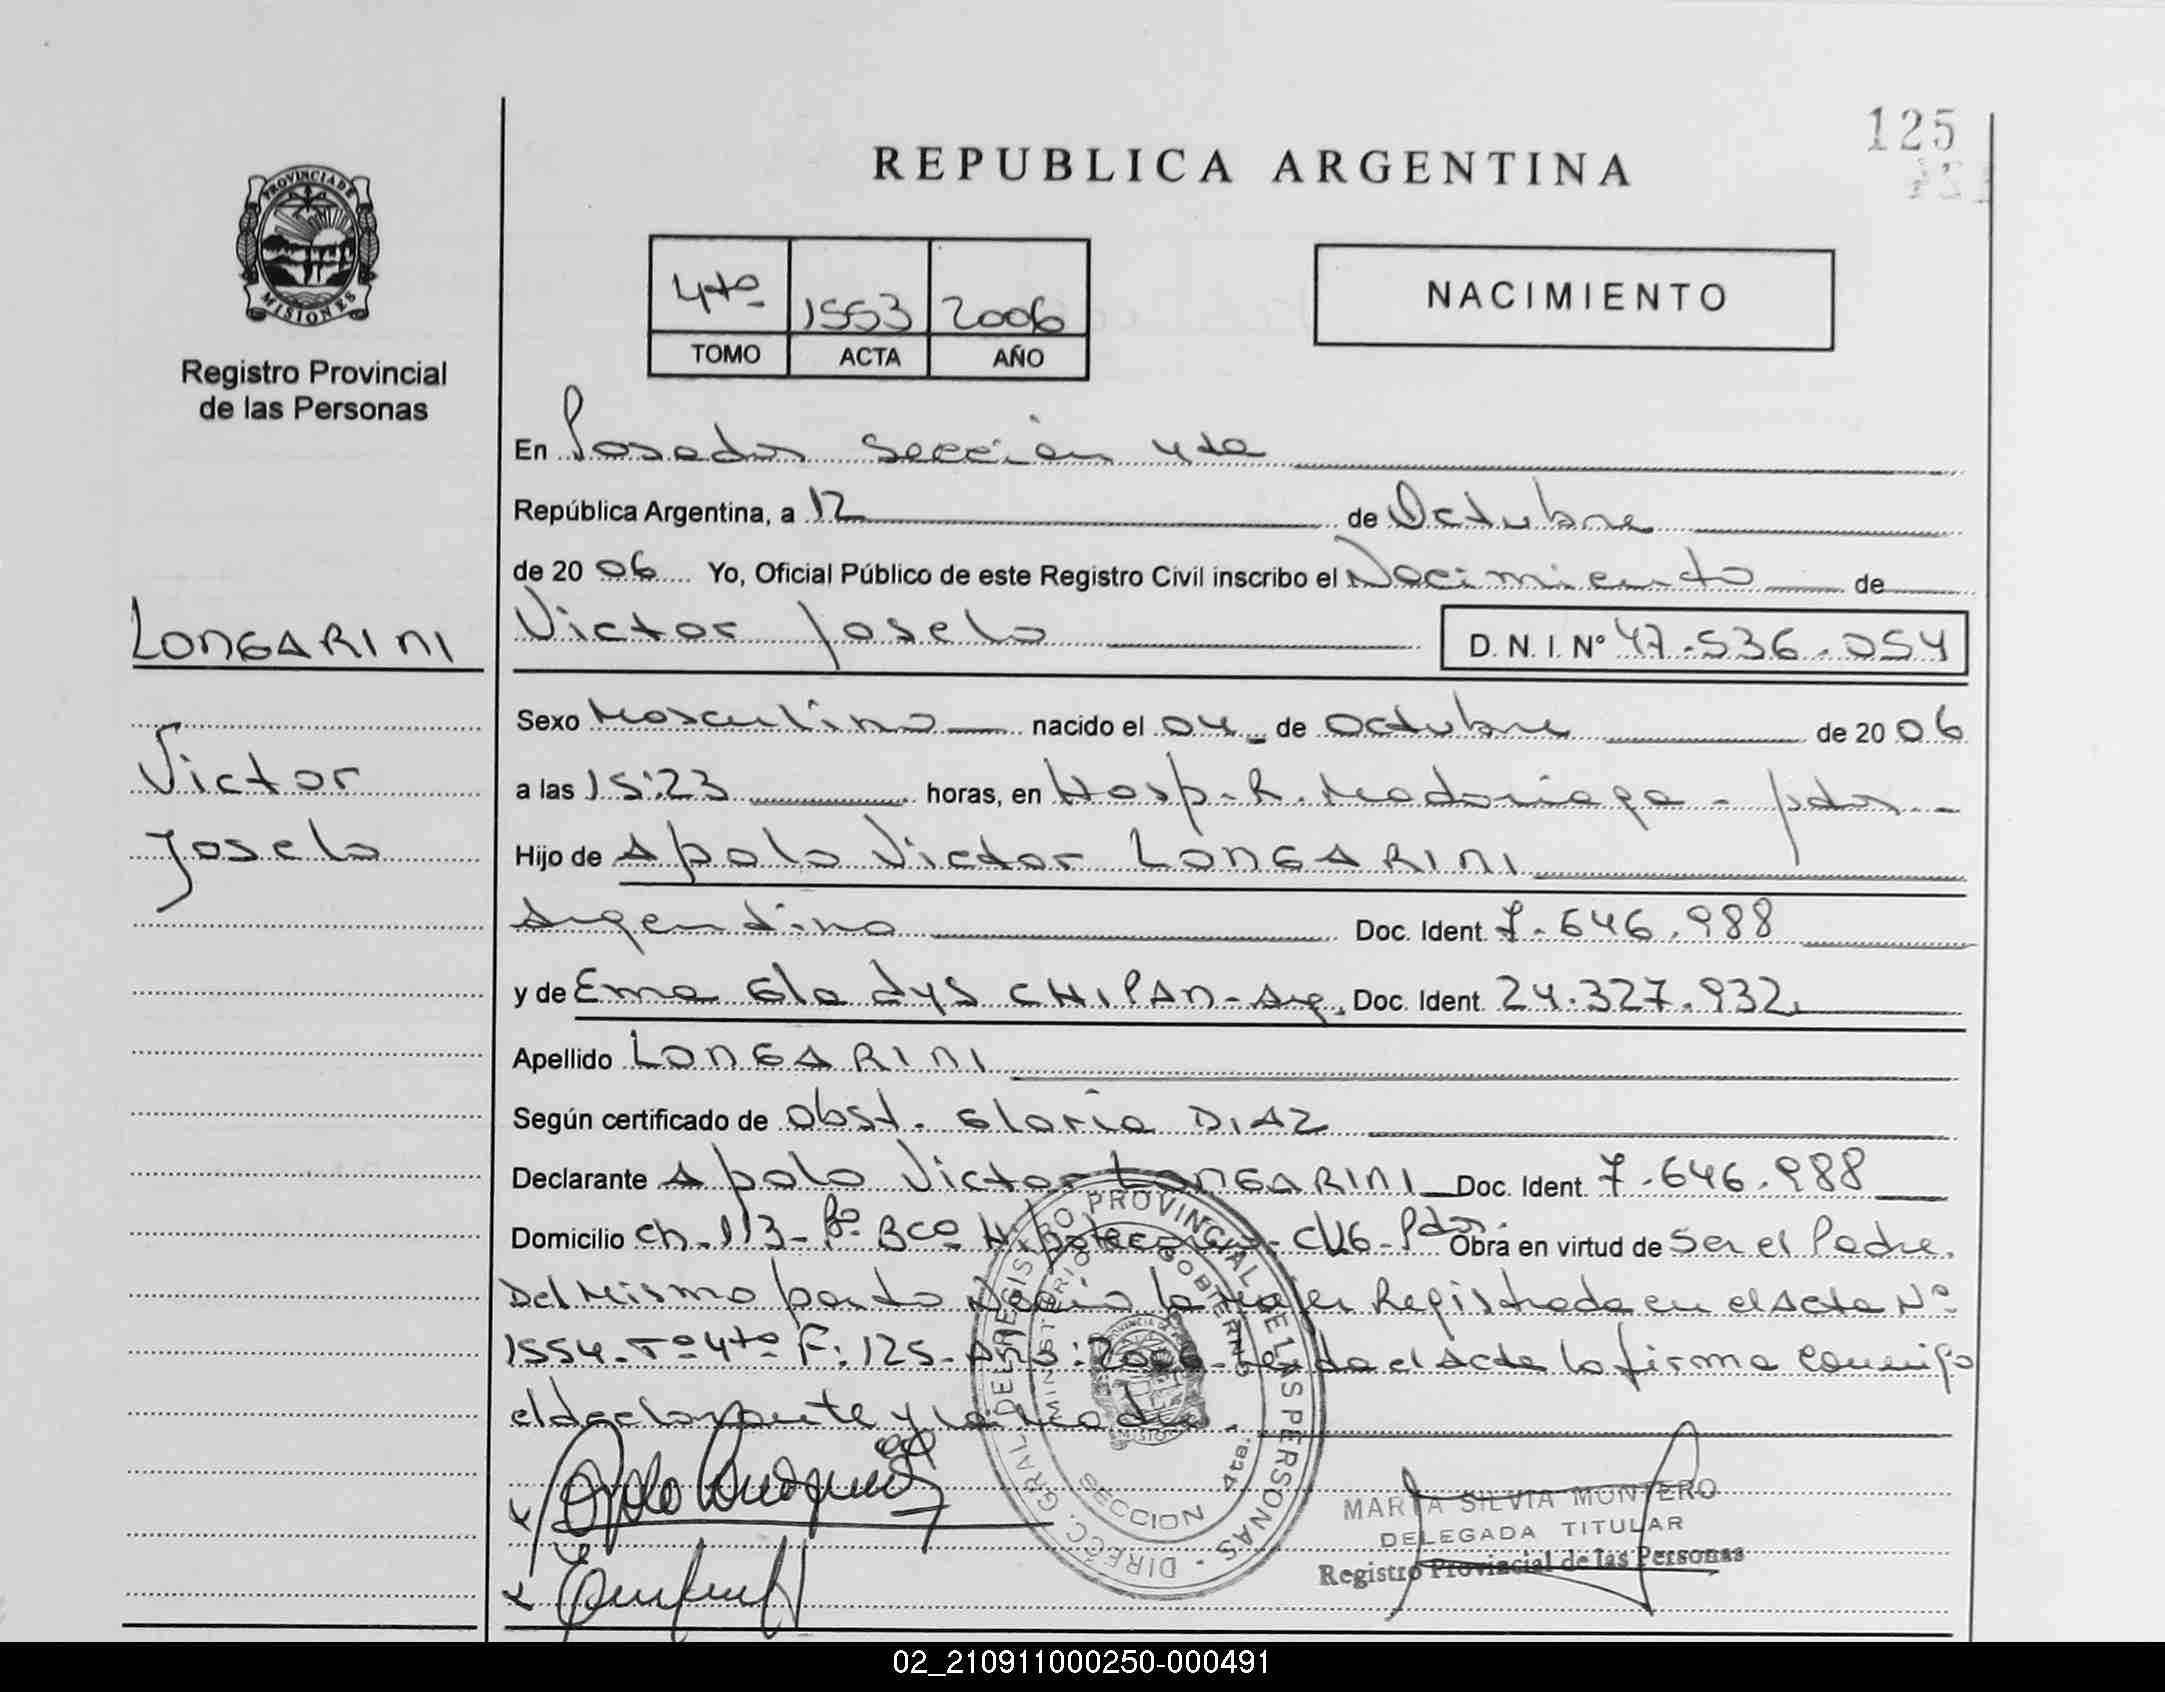 125
REPUBLICA ARGENTINA
PROVINCIA DE
MISIONES
Registro Provincial
de las Personas
4to 1553 2006
TOMO ACTA AÑO
NACIMIENTO
En Posadas Sección 4ta
República Argentina, a 12 de Octubre
de 2006 Yo, Oficial Público de este Registro Civil inscribo el Nacimiento de
LONGARINI
Victor Joselo
D. N. I. Nº 47.536.054
Sexo Masculino nacido el 04 de Octubre de 2006
Victor
a las 15:23 horas, en Hosp. R. Madariaga - pdas
Joselo
Hijo de Apolo Victor LONGARINI
Argentino Doc. Ident. 7.646.988
y de Ema Gladys CHIPAN - Arg. Doc. Ident. 24.327.932
Apellido LONGARINI
Según certificado de Obst. Gloria DIAZ
Declarante Apolo Victor LONGARINI Doc. Ident. 7.646.988
Domicilio Ch. 113 - Bº Bco Hipotecario - Pdas. Obra en virtud de Ser el Padre.
Del Mismo parto Nació la Registrada en el Acta Nº
1554. Tº 4to F: 125 - Año: 2006 - Leida el Acta la firma Conmigo
el declarante y la madre
DIRECC. GRAL. DEL REGISTRO PROVINCIAL DE LAS PERSONAS
MINISTERIO GOBIERNO
PROVINCIA DE
MISIONES
SECCION 4ta.
MARIA SILVIA MONTERO
DELEGADA TITULAR
Registro Provincial de las Personas
02_210911000250-000491